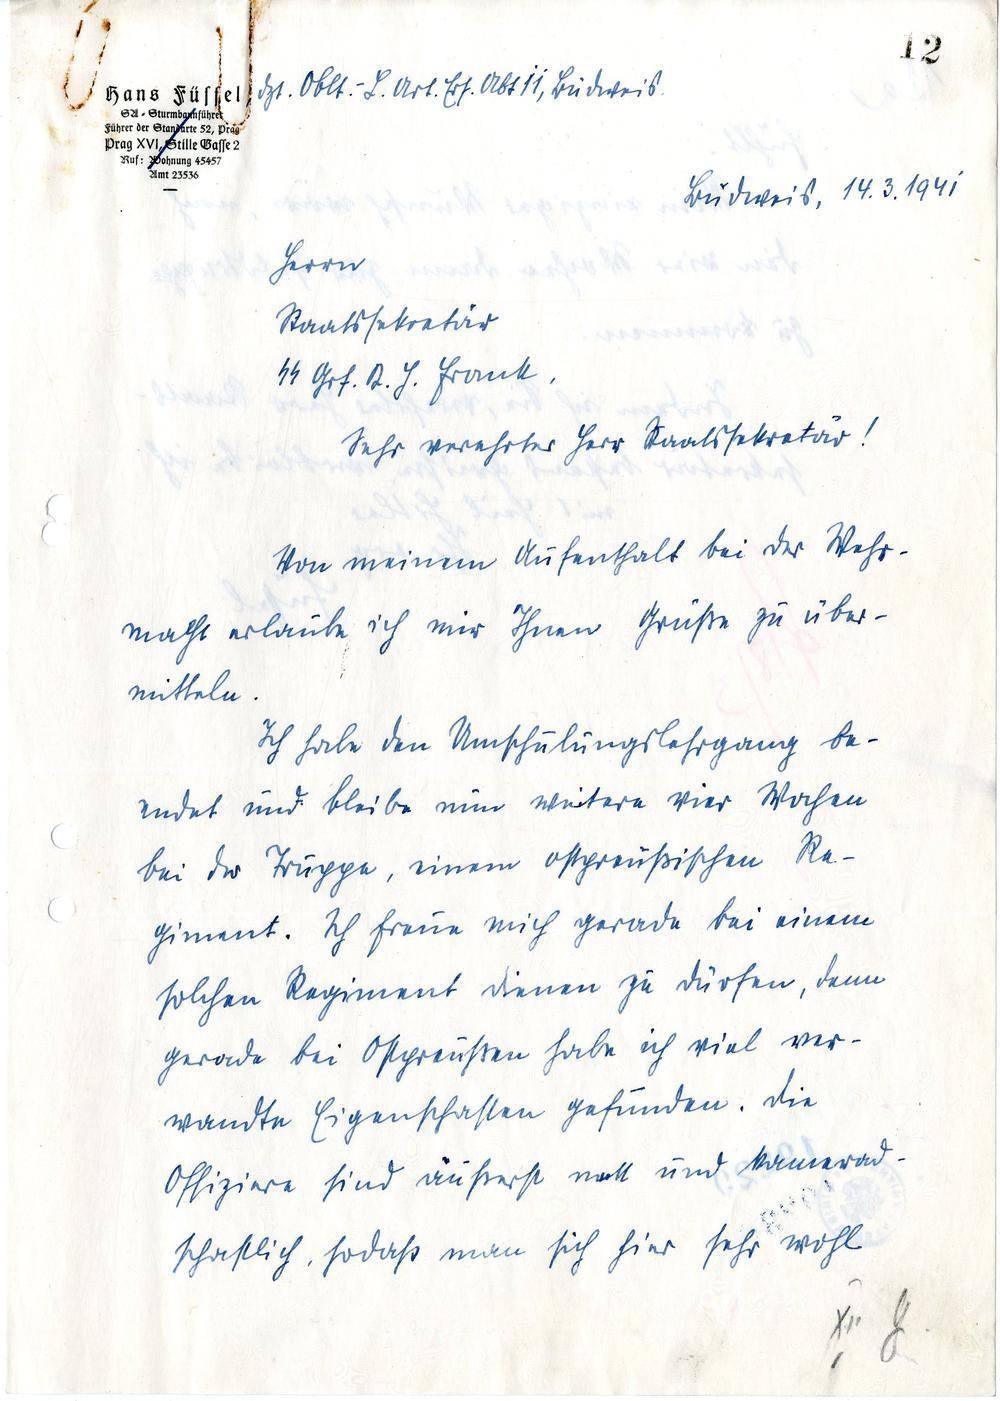 12
Hans Füssel
SA-Sturmbannführer
Führer der Standarte 52, Prag
Prag XVI, Stille Gasse 2
Ruf: Wohnung 45457
Amt 23536
dzt. Oblt.- L. Art. Ers. Abt 11, Budweis.
Budweis, 14.3.1941
Herrn
Staatssekretär
SS Grf. K. H. Frank.
Sehr verehrter Herr Staatssekretär!
Von meinem Aufenthalt bei der Wehr-
macht erlaube ich mir Ihnen Grüße zu über-
mitteln.
Ich habe den Umschulungslehrgang be-
endet und bleibe nun weitere vier Wochen
bei der Truppe, einem ostpreußischen Re-
giment. Ich freue mich gerade bei einem
solchen Regiment dienen zu dürfen, denn
gerade bei Ostpreußen habe ich viel ver-
wandte Eigenschaften gefunden. Die
Offiziere sind äußerst nett und kamerad-
schaftlich, sodaß man sich hier sehr wohl